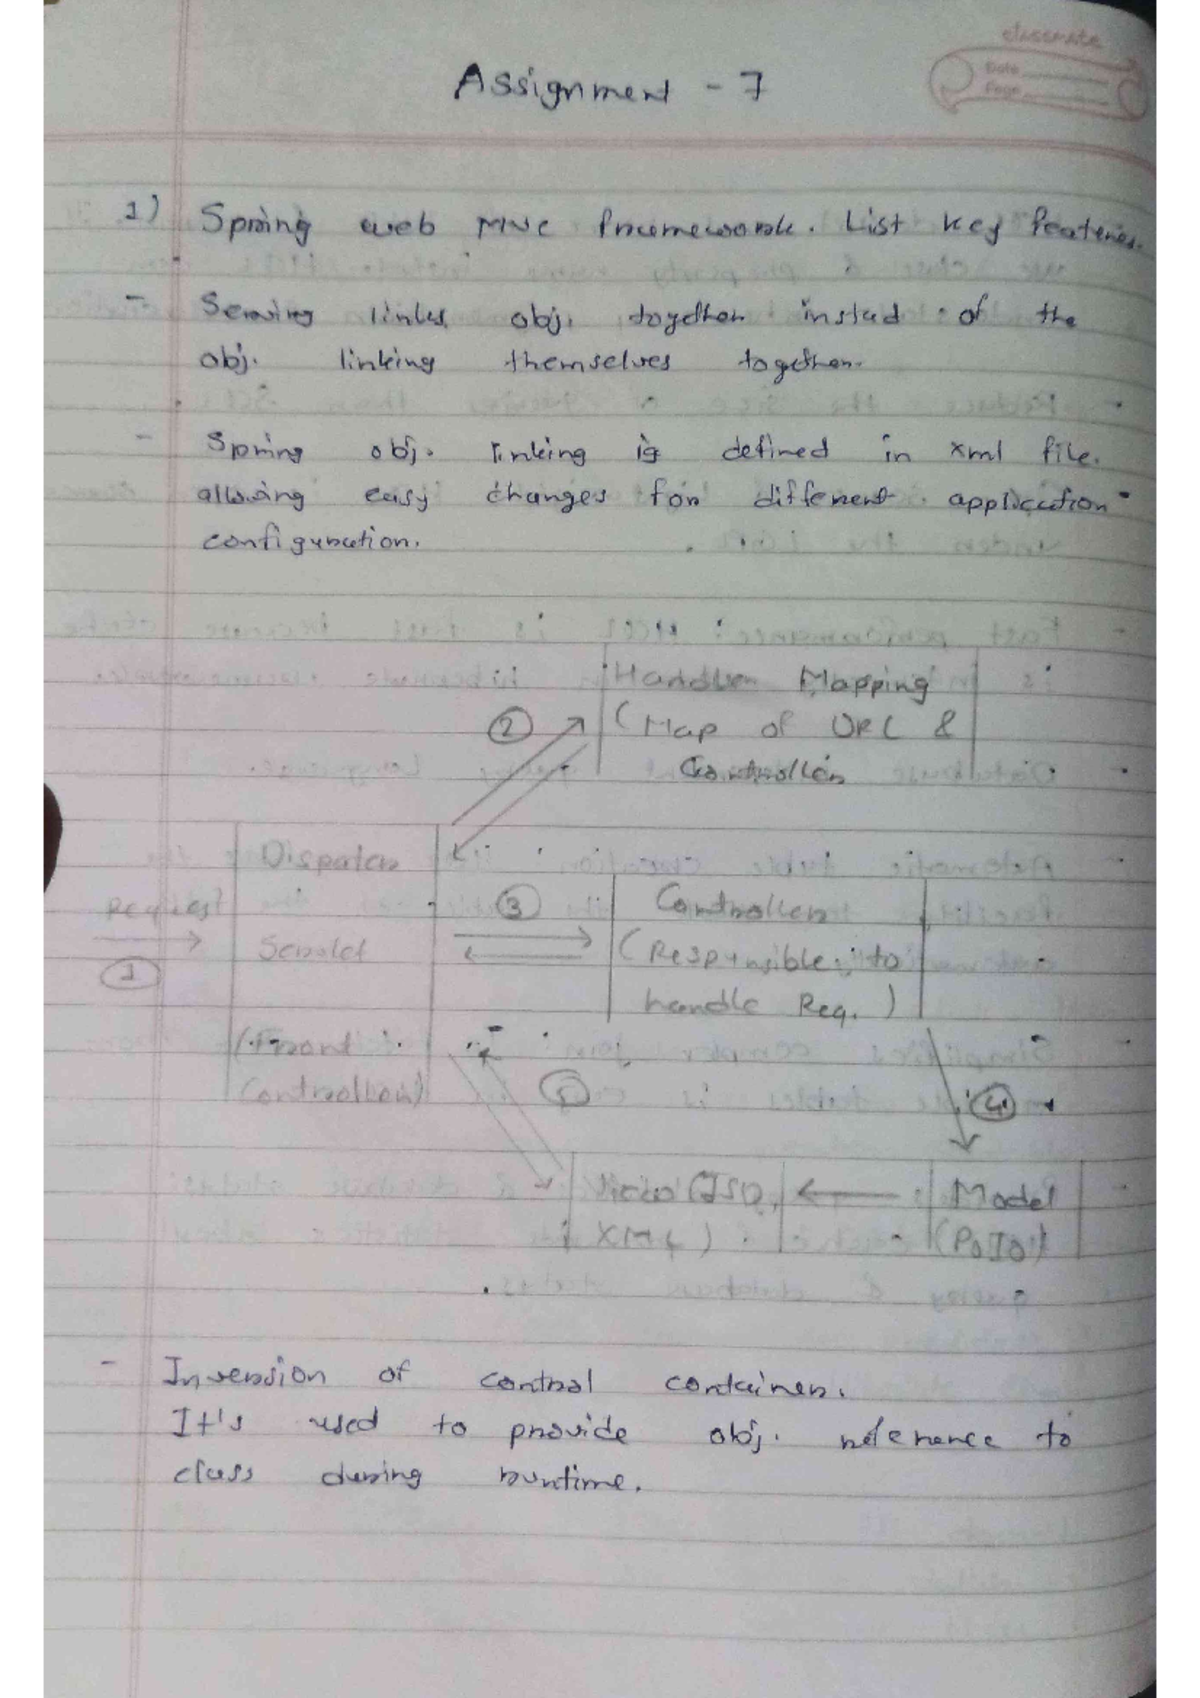 classmate
Date
Page
Assignment - 7
1) Spring web MVC Framework. List key features.
- Serving links obj. together instad of the
obj. linking themselves together.
- Spring obj. linking is defined in xml file.
allowing easy changes for different application
configuration.
Handler Mapping
(Map of URL &
Controller
2
Dispatch
Servlet
(Front
Controller)
Request
1
3
Controller
(Responsible to
handle Req.)
5
4
View (JSP,
XML)
Model
(POJO)
- Inversion of control container.
It's used to provide obj. reference to
class during runtime.